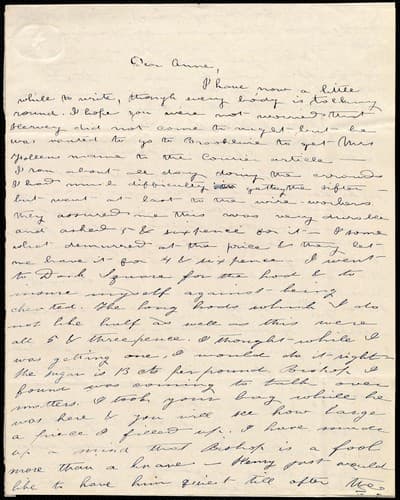 Dear Anne,
I have now a little
while to write, though every body is talking
round. I hope you were not worried that
Henry did not come to night but he
was wanted to go to Brookline to get Mrs
Follens name to the Courier article —
I ran about all day doing the errands
I had much difficulty getting the sifter —
but went at last to the wire-workers
they assured me this was very
and asked 5 & sixpence for it — I some
what demurred at the price & they let
me have it for 4 & sixpence. I went
to Dock Square for the & to
myself against being
cheated. The long hods which I do
not like half as well as this were
all 5 & threepence. I thought while I
was getting one, I would do it right
The sugar is 13 cts per pound. Bishop I
found was coming to talk over
matters. I took your bag while he
was here & you will see how large
a piece I filled up. I have made
up a mind that Bishop is a fool
more than a knave — Henry just would
like to have him quiet till after the